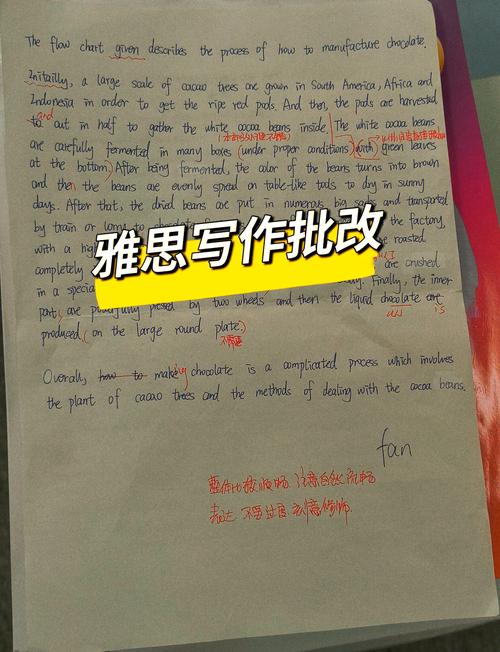 The flow chart given describes the process of how to manufacture chocolate.
Initailly, a large scale of cacao trees are grown in South America, Africa and
Indonesia in order to get the ripe red pods. And then, the pods are harvested
and
to cut in half to gather the white cocoa beans inside. The white cocoa beans
are carefully fermented in many boxes (under proper conditions) with green leaves
at the bottom. After being fermented, the color of the beans turns into brown
and then the beans are evenly spread on table-like tools to dry in sunny
days. After that, the dried beans are put in numerous big sacks and transported
by train or lorry to the factory,
with a high roasted
completely are crushed
in a special Finally, the inner
part, are powerfully pressed by two wheels and then the liquid chocolate are
is
produced (on the large round plate.)
不需要
雅思写作批改
Overall, how to make chocolate is a complicated process which involves
the plant of cacao trees and the methods of dealing with the cocoa beans.
fan
整体比较顺畅 注意自然流畅
表达 不要过度 刻意修饰.